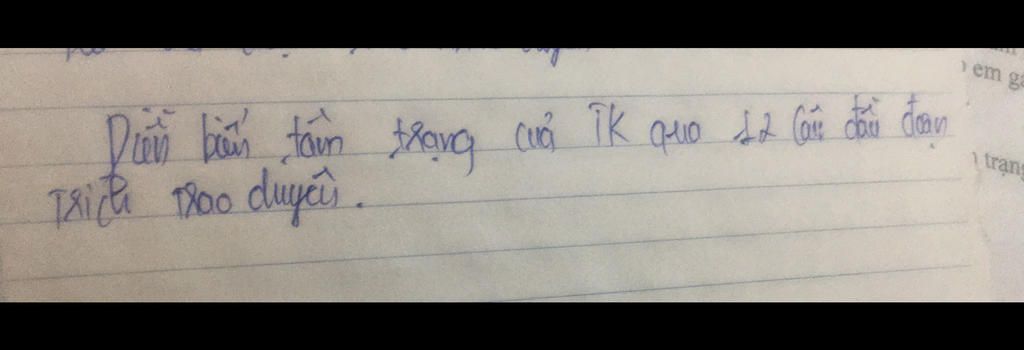 em gá
Diễn biến tâm trạng của TK qua 12 câu đầu đoạn
trạng
Trích Trao duyên.